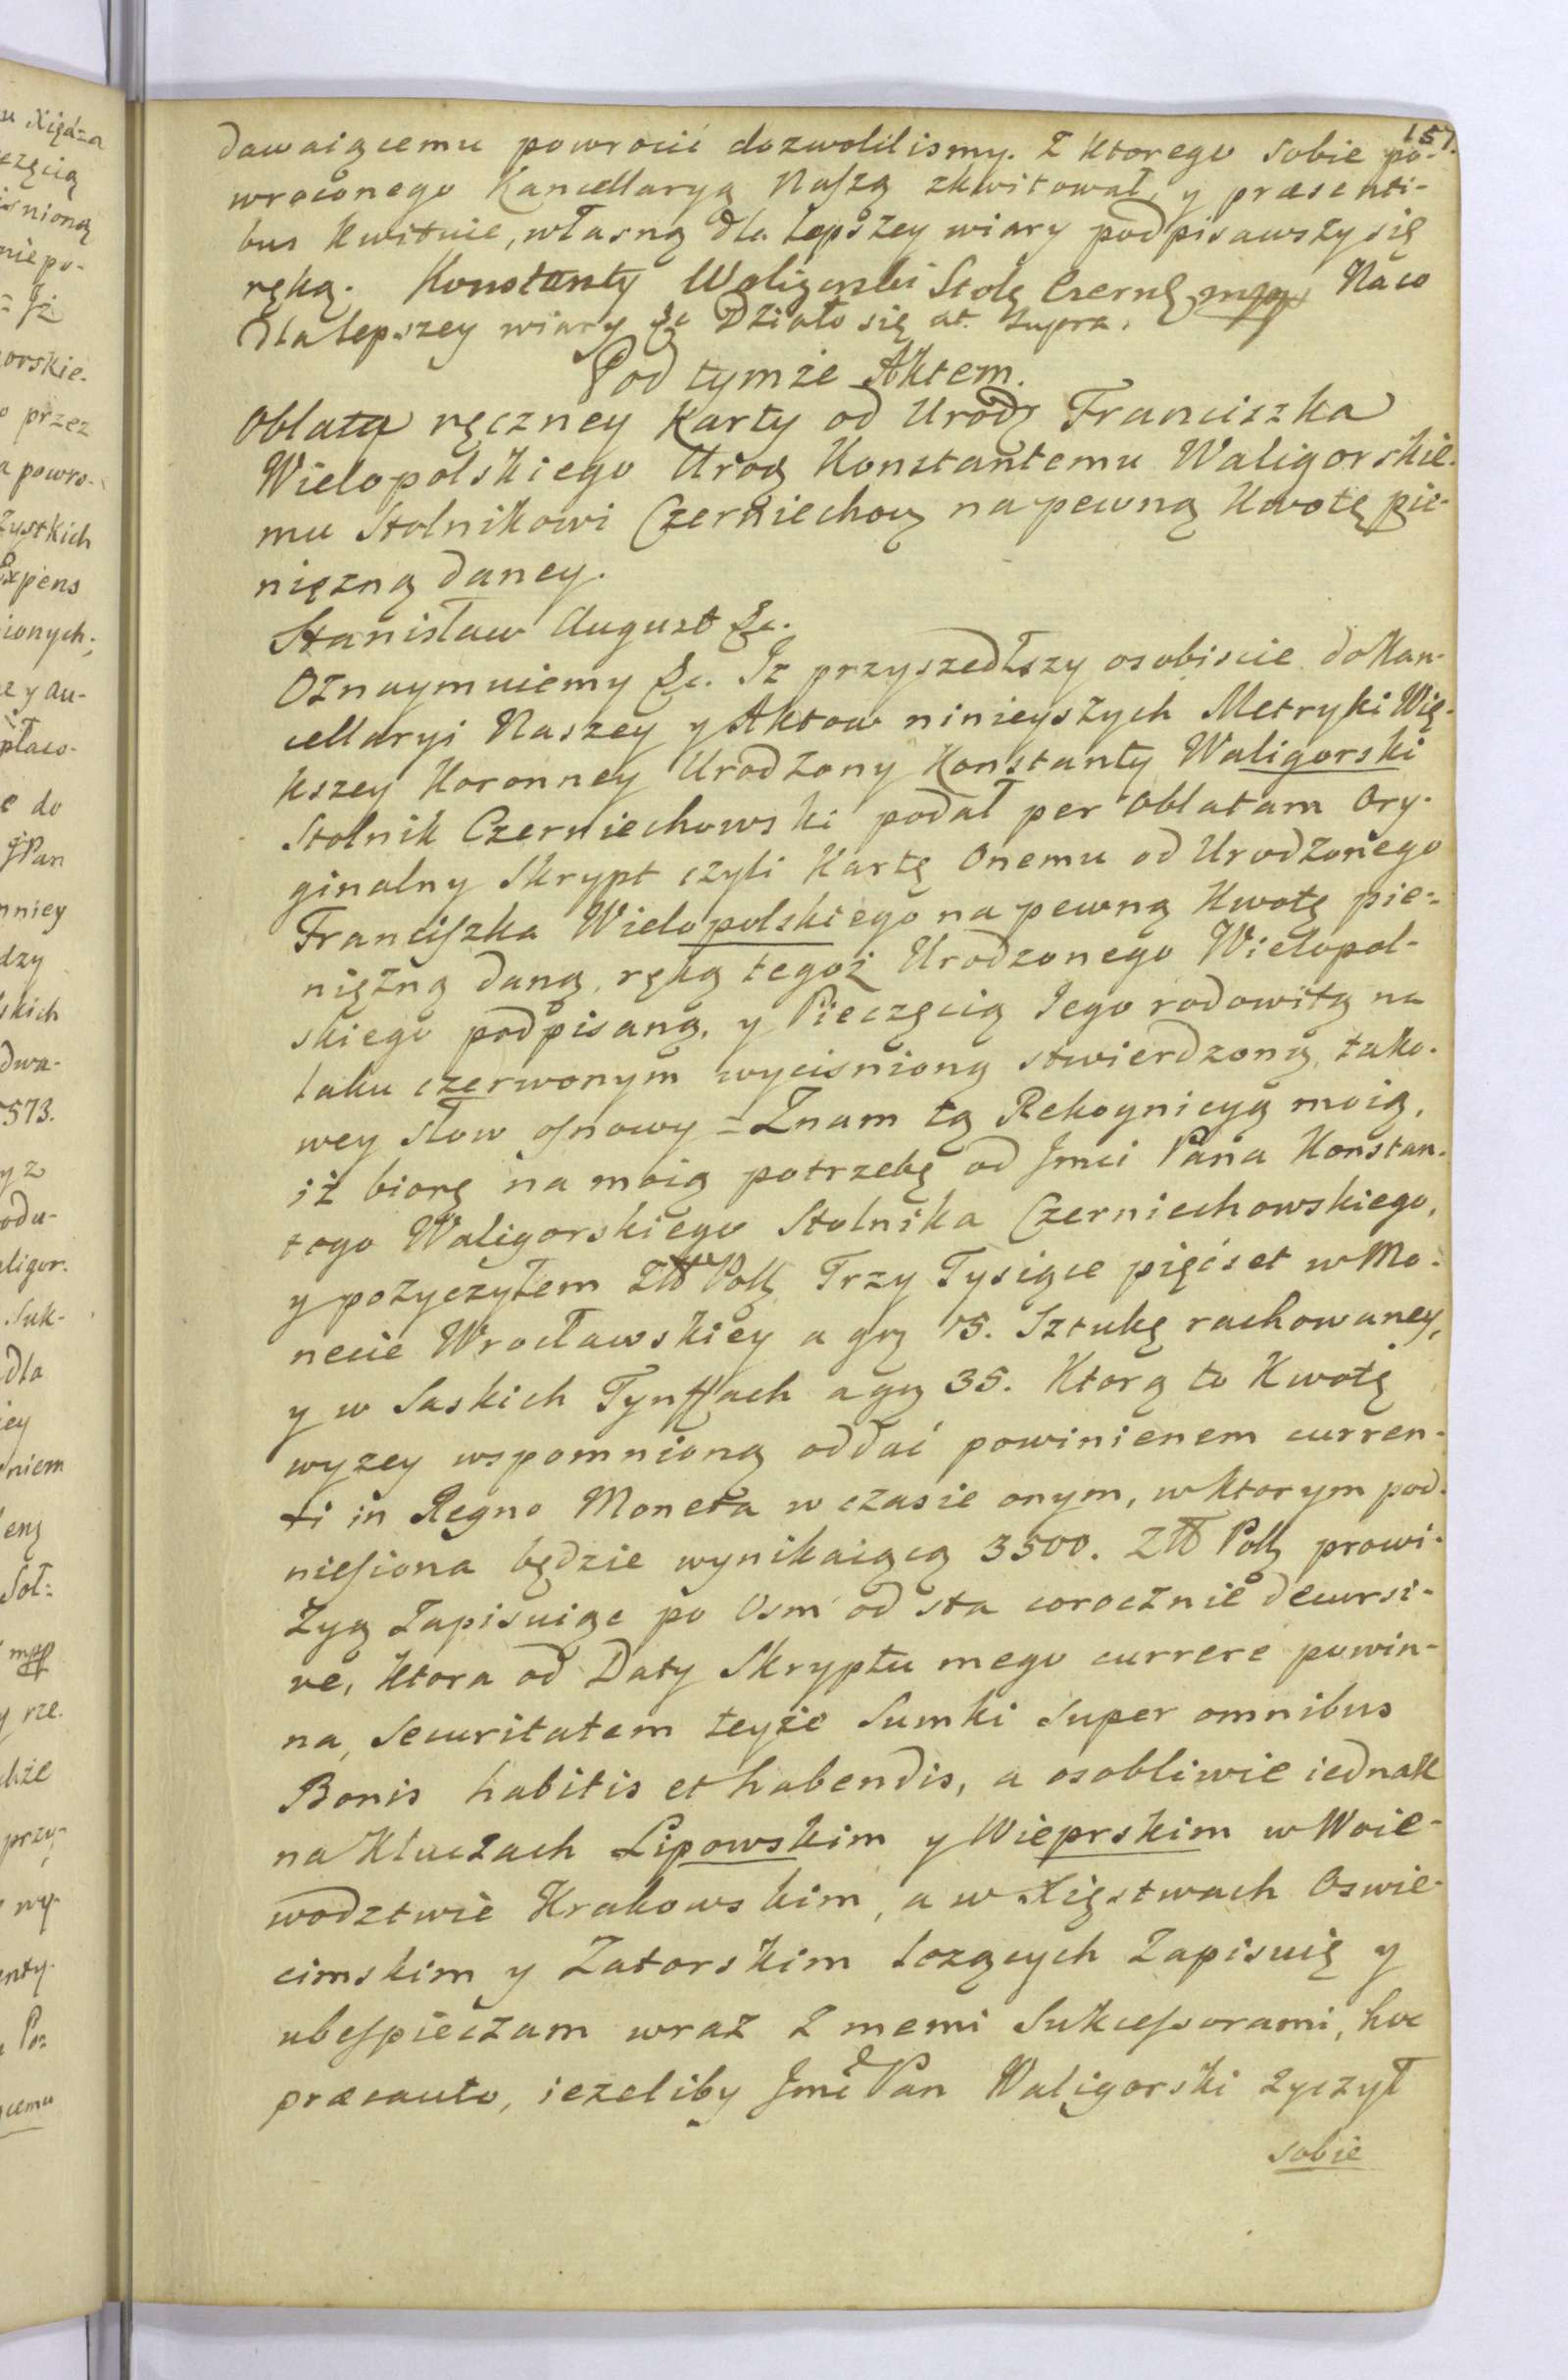 157.
dawaiącemu powrocić dozwolilismy. Z ktorego sobie po-
wroconego Kancellaryą Naſzą zkwitował, y præsenti-
bus kwituie, własną dla lepszey wiary podpisawszy się
ręką. Konstanty Waligorski Stolę Czernę mpp Na co
dla lepszey wiary &c Działo się ut supra.
Pod tymże Aktem.
Oblata ręczney Karty od Urodz Franciszka
Wielopolskiego Urodz Konstantemu Waligorskie-
mu Stolnikowi Czerniechowę na pewną Kwotę pie-
niężną daney.
Stanisław August &c.
Oznaymuiemy &c. Iż przyszedłszy osobiscie do Kan-
cellaryi Naszey y Aktow ninieyszych Metryki Wię-
kszey Koronney Urodzony Konstanty Waligorski
Stolnik Czerniechowski podał per Oblatam Ory-
ginalny Skrypt czyli Kartę Onemu od Urodzonego
Franciſzka Wielopolskiego na pewną Kwotę pie-
niężną daną, ręką tegoż Urodzonego Wielopol-
skiego podpisaną, y Pieczęcią Jego rodowitą na
laku czerwonym wycisnioną stwierdzoną, tako-
wey słow oſnowy = Znam tą Rekognicyą moią,
iż biorę na moią potrzebę od Jmci Pana Konstan-
tego Waligorskiego Stolnika Czerniechowskiego,
y pożyczyłem Złł Poll Trzy Tysiące pięćset w Mo-
necie Wrocławskiey a grę 15. Sztukę rachowaney,
y w Saskich Tynffach a grę 35. Ktorą to Kwotę
wyzey wspomnioną oddać powinienem curren-
ti in Regno Moneta w czasie onym, w ktorym pod-
nieſiona będzie wynikaiącą 3500. Złł Poll prowi-
zyą Zapisuiąc po Osm od sta corocznie decursi-
ve, ktora od Daty Skryptu mego currere powin-
na, Securitatem teyże Sumki super omnibus
Bonis habitis et habendis, a osobliwie iednak
na Kluczach Lipowskim y Wieprskim w Woie-
wodztwie Krakowskim, a w Xięstwach Oswie-
cimskim y Zatorskim lezących Zapisuię y
ubeſpieczam wraz z memi Sukceſsorami, hoc
præcauto, iezeliby Jmć Pan Waligorski zyczył
sobie